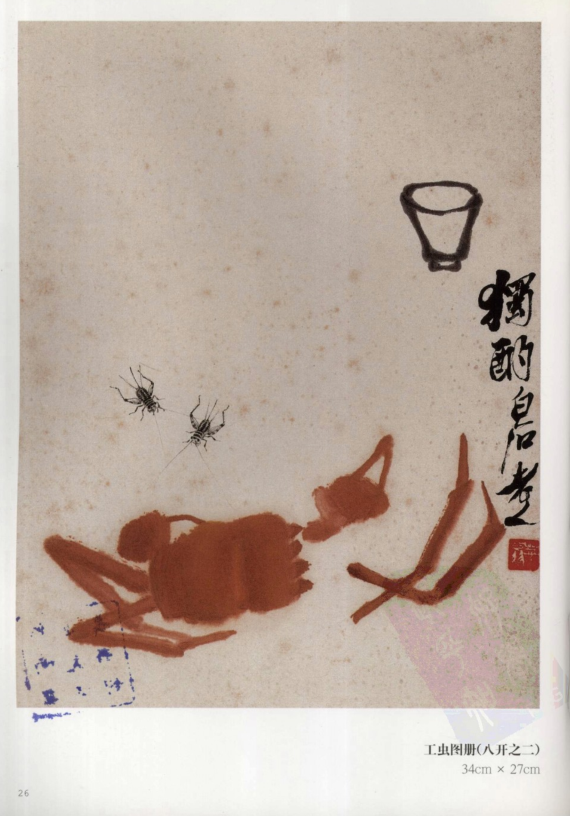 獨酌
白石老人
工虫图册(八开之二)
34cm × 27cm
26